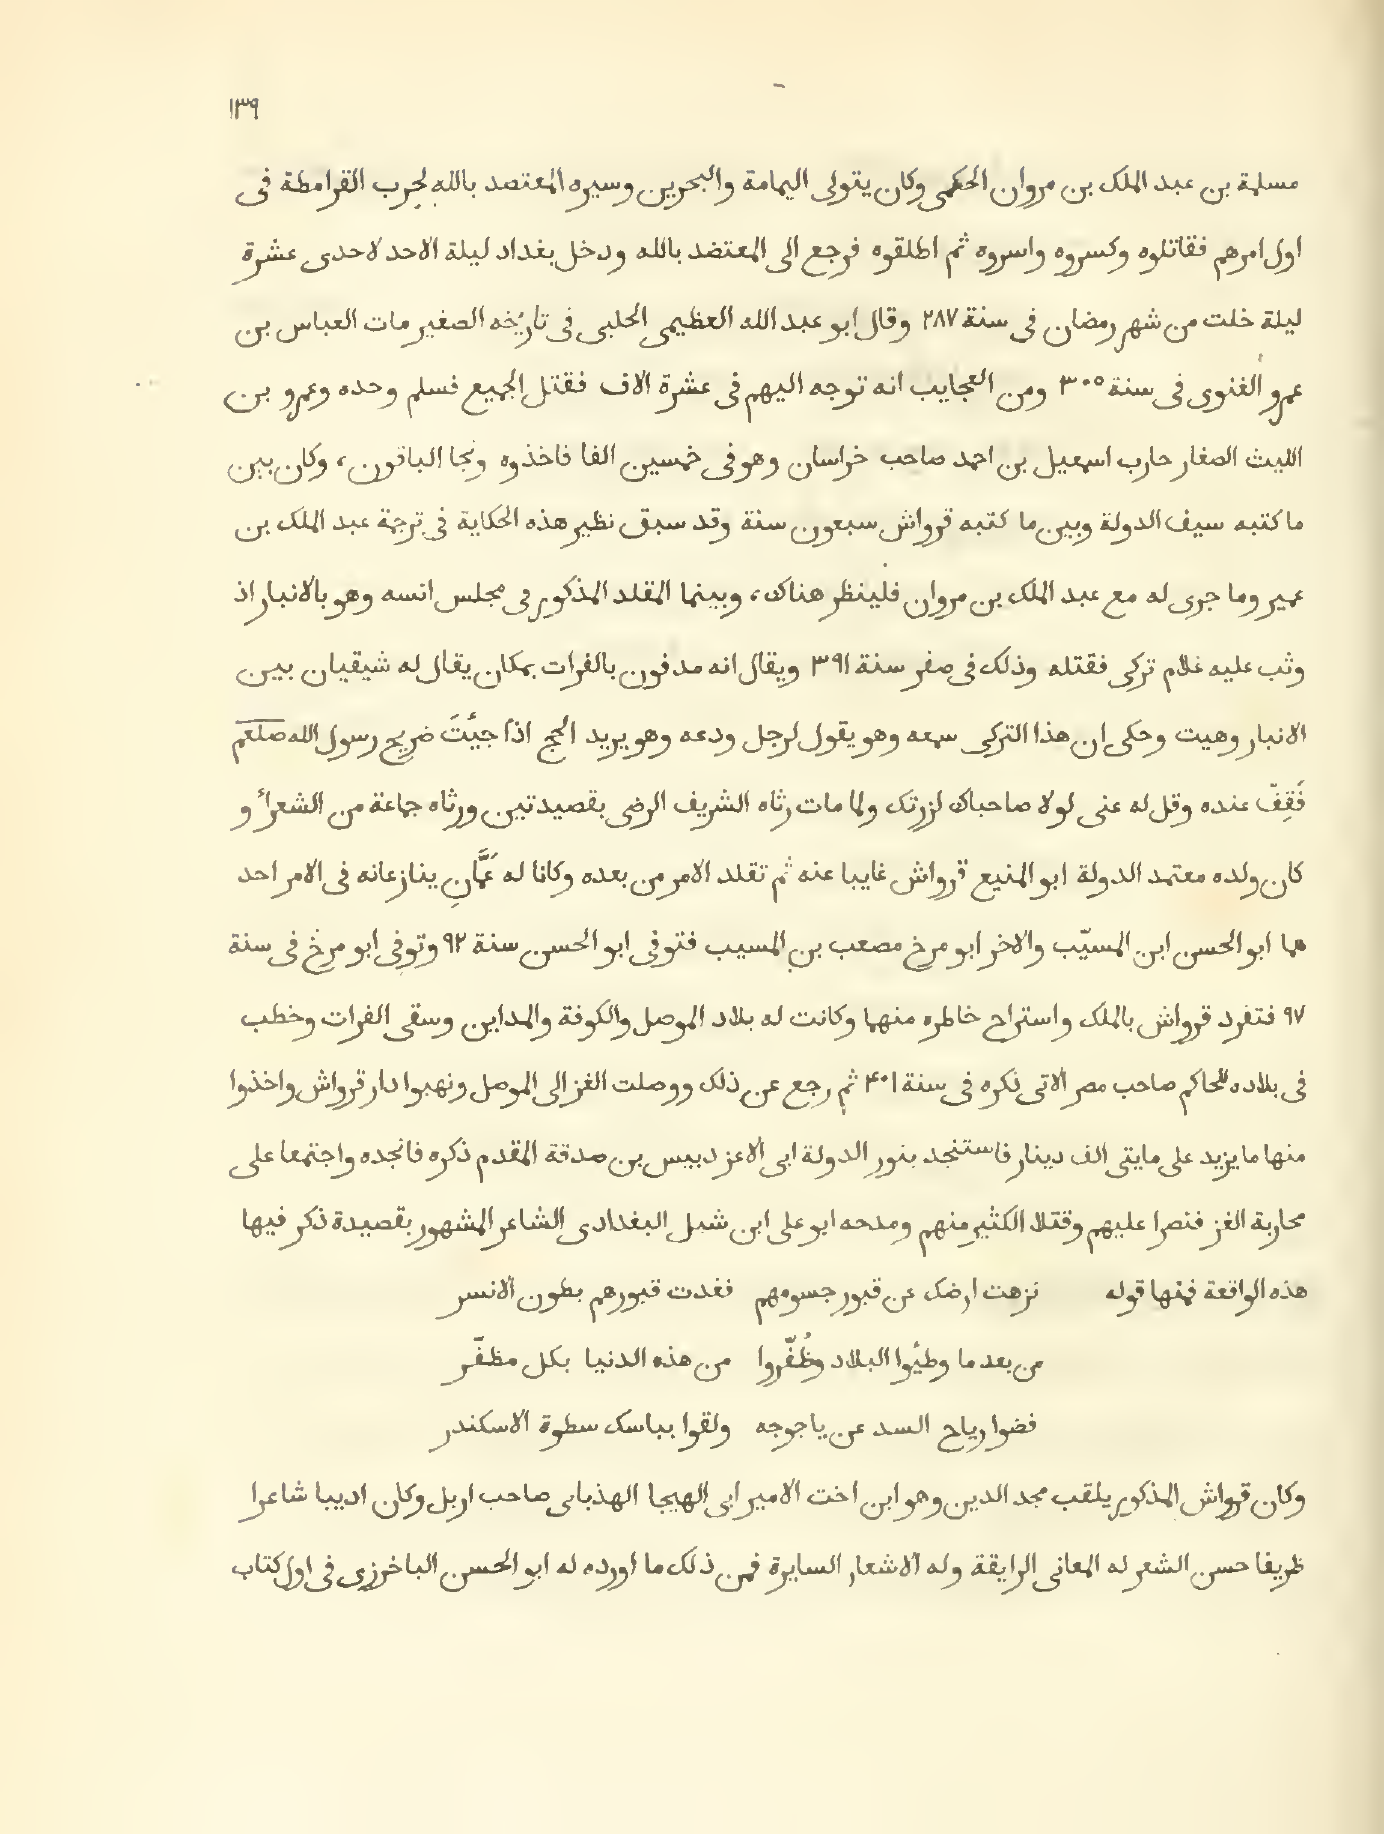 ١٣٩
مسلمة بن عبد الملك بن مروان الحكمى وكان يتولى اليمامة والبحرين وسيره المعتصد بالله لحرب القرامطة فى
اول امرهم فقاتلوه وكسروه واسروه ثم اطلقوه فرجع الى المعتضد بالله ودخل بغداد ليلة الاحد لاحدى عشرة
ليلة خلت من شهر رمضان فى سنة ٢٨٧ وقال ابو عبد الله العظيمى الحلبى فى تاريخه الصغير مات العباس بن
عمرو الغنوى فى سنة ٣٠٥ ومن العجايب انه توجه اليهم فى عشرة الاف فقتل الجميع فسلم وحده وعمرو بن
الليث الصفار حارب اسمعيل بن احمد صاحب خراسان وهو فى خمسين الفا فاخذوه ونجا الباقون، وكان بين
ما كتبه سيف الدولة وبين ما كتبه قرواش سبعون سنة وقد سبق نظير هذه الحكاية فى ترجمة عبد الملك بن
عمير وما جرى له مع عبد الملك بن مروان فلينظر هناك، وبينما المقلد المذكور فى مجلس انسه وهو بالانبار اذ
وثب عليه غلام تركى فقتله وذلك فى صفر سنة ٣٩١ ويقال انه مدفون بالفرات بمكان يقال له شيقيان بين
الانبار وهيت وحكى ان هذا التركى سمعه وهو يقول لرجل ودعه وهو يريد الحج اذا جئتَ ضريح رسول الله صلعم
فَقِفّ عنده وقل له عنى لولا صاحباك لزرتك ولما مات رثاه الشريف الرضى بقصيدتين ورثاه جماعة من الشعرأ و
كان ولده معتمد الدولة ابو المنيع قرواش غايبا عنه ثم تقلد الامر من بعده وكانا له عَمَّانِ ينازعانه فى الامر احد
هما ابو الحسن ابن المسيّب والاخر ابو مرخ مصعب بن المسيب فتوفى ابو الحسن سنة ٩٢ وتوفى ابو مرخ فى سنة
٩٧ فتفرد قرواش بالملك واستراح خاطره منهما وكانت له بلاد الموصل والكوفة والمداين وسقى الفرات وخطب
فى بلاده للحاكم صاحب مصر الاتى ذكره فى سنة ٤٠١ ثم رجع عن ذلك ووصلت الغز الى الموصل ونهبوا دار قرواش واخذوا
منها ما يزيد على مايتى الف دينار فاستنجد بنور الدولة ابى الاعز دبيس بن صدقة المقدم ذكره فانجده واجتمعا على
محاربة الغز فنصرا عليهم وقتلا الكثير منهم ومدحه ابو على ابن شبل البغدادى الشاعر المشهور بقصيدة ذكر فيها
هذه الواقعة فمنها قوله نزهت ارضك عن قبور جسومهم فغدت قبورهم بطون الانسر
من بعد ما وطئوا البلاد وظُفّروا من هذه الدنيا بكل مظفّر
فضوا رياح السد عن ياجوجه ولقوا بباسك سطوة الاسكندر
وكان قرواش المذكور يلقب مجد الدين وهو ابن اخت الامير ابى الهيجا الهذبانى صاحب اربل وكان اديبا شاعرا
ظريفا حسن الشعر له المعانى الرايقة وله الاشعار السايرة فمن ذلك ما اورده له ابو الحسن الباخرزى فى اول كتاب